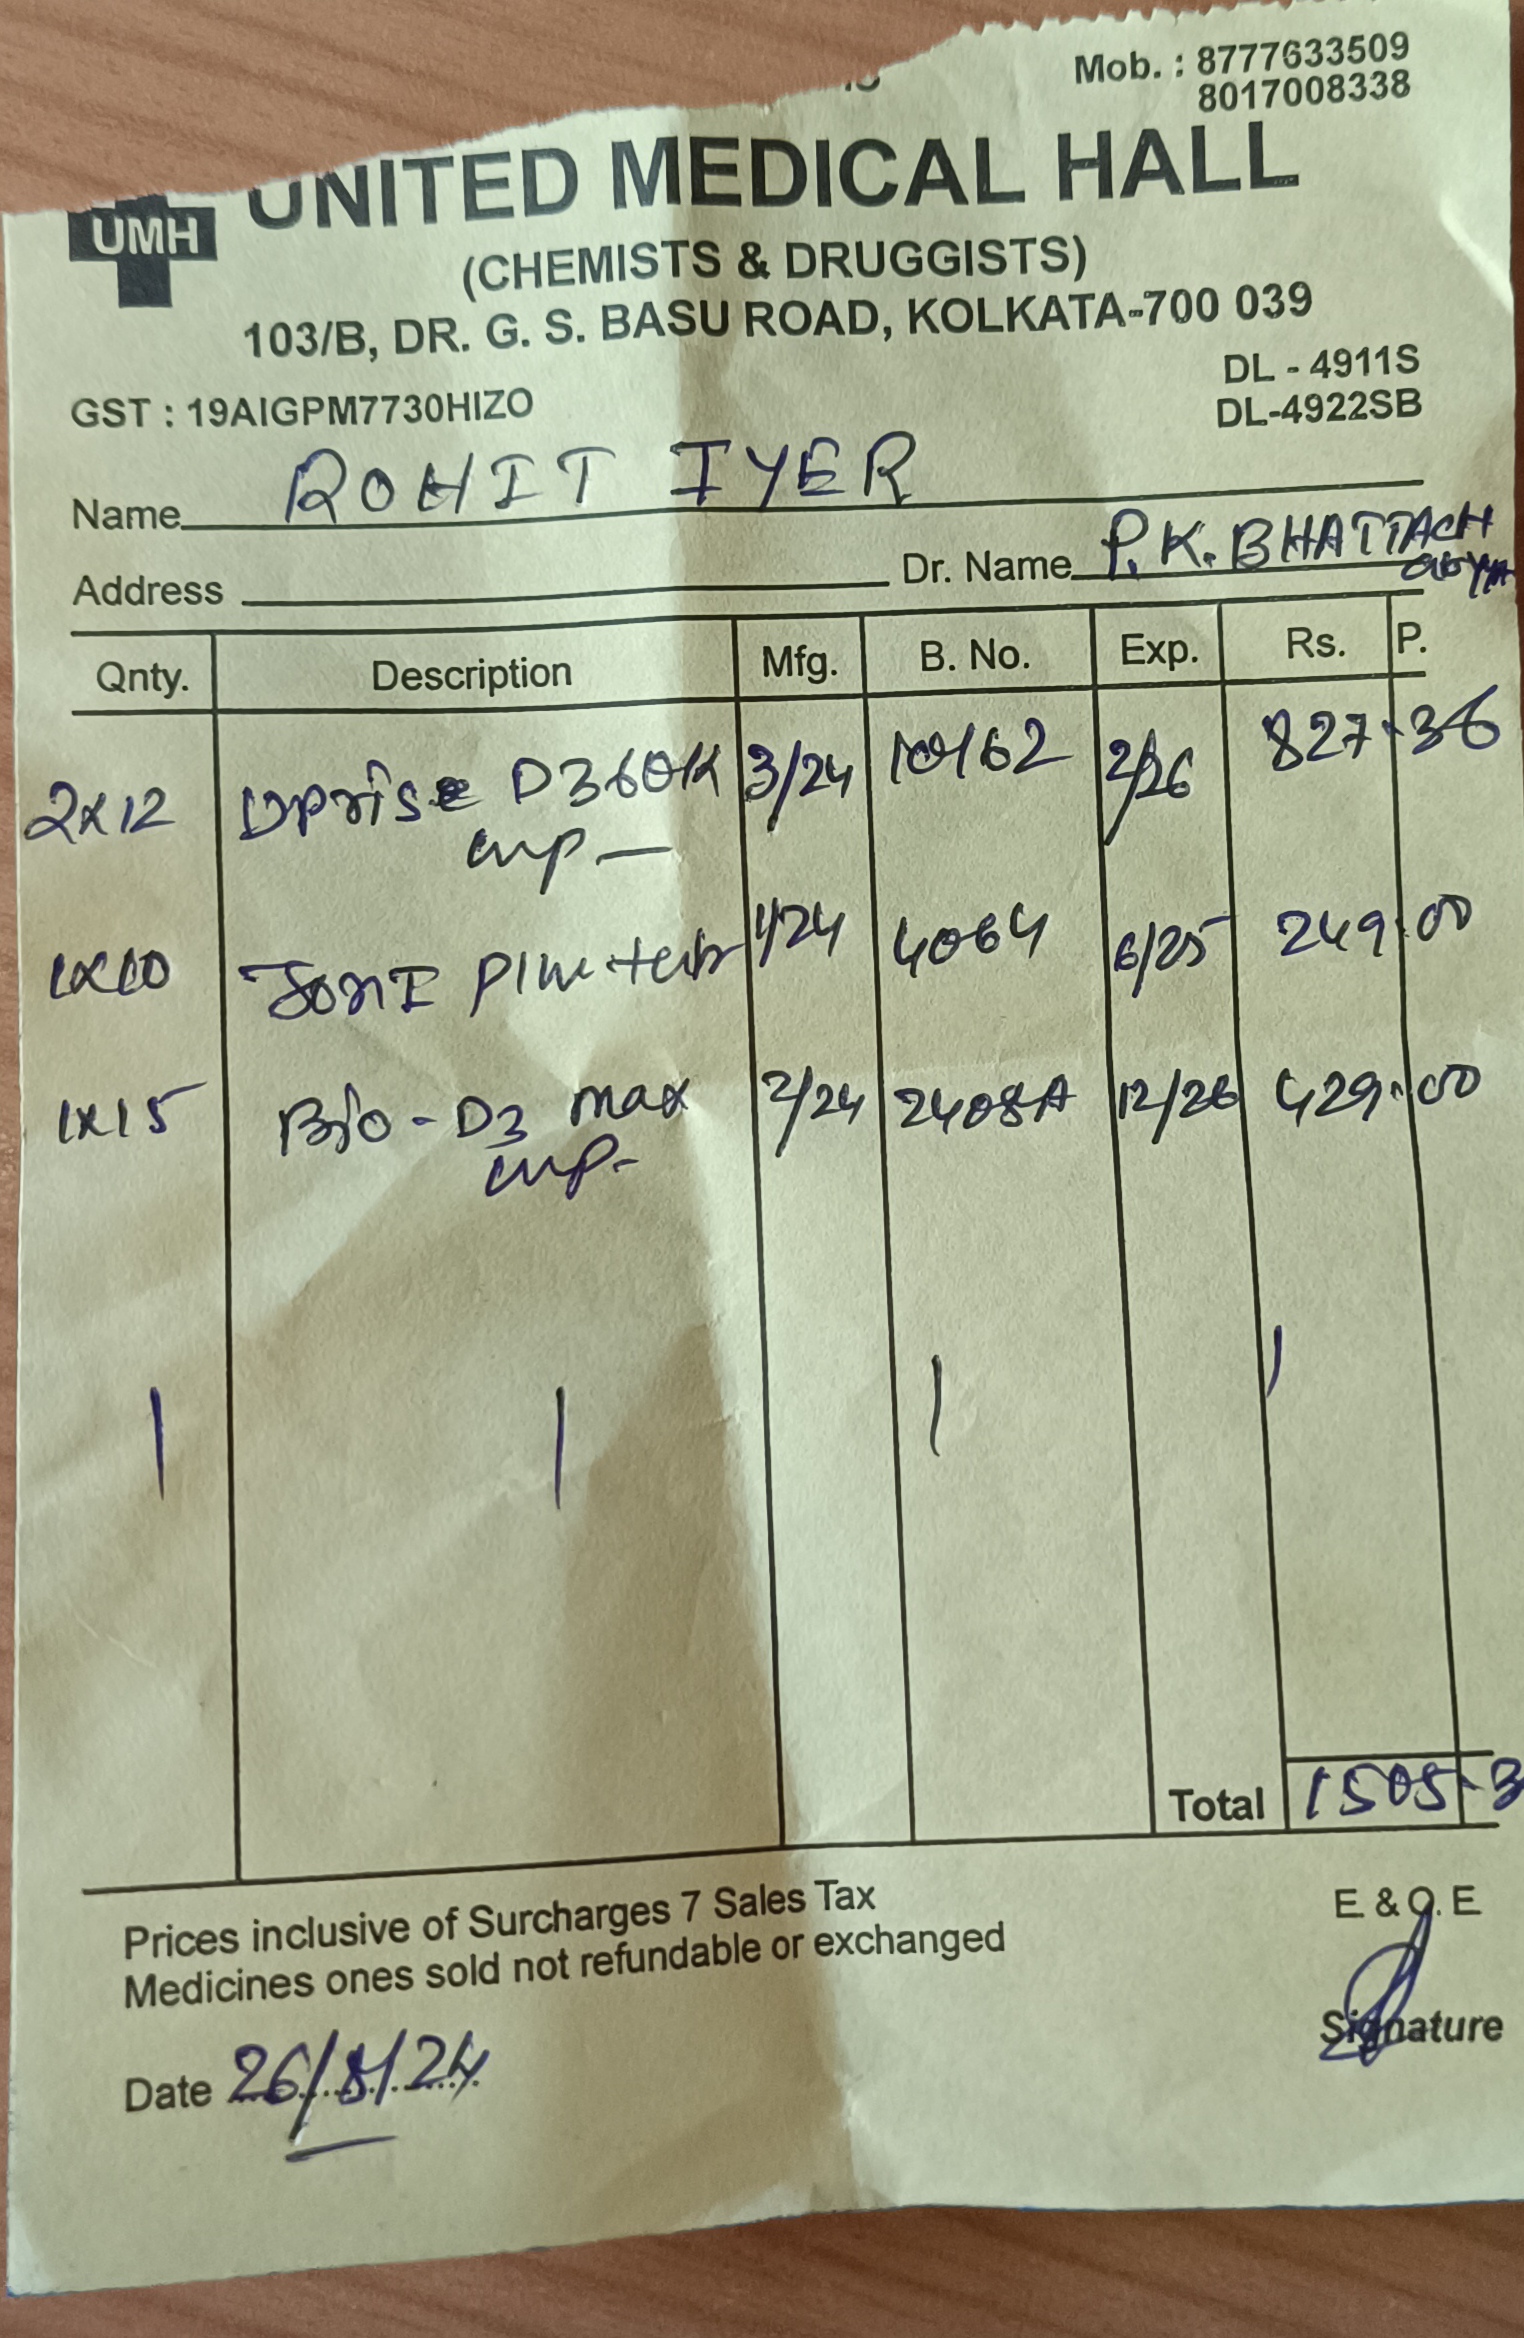 Mob. : 8777633509
8017008338
UNITED MEDICAL HALL
UMH
(CHEMISTS & DRUGGISTS)
103/B, DR. G. S. BASU ROAD, KOLKATA-700 039
DL - 4911S
GST : 19AIGPM7730HIZO DL-4922SB
Name ROHIT IYER
Address Dr. Name P.K. BHATTACH
Qnty. Description Mfg. B. No. Exp. Rs. P.
2x12 Uprise D3 60K 3/24 2/26 827.36
1x10 4/24 4064 6/25 249.00
1x15 Bio-D3 max 2/24 2408A 12/26 429.00
Total 1505.3
Prices inclusive of Surcharges 7 Sales Tax E. & O. E
Medicines ones sold not refundable or exchanged
Signature
Date 26/8/24